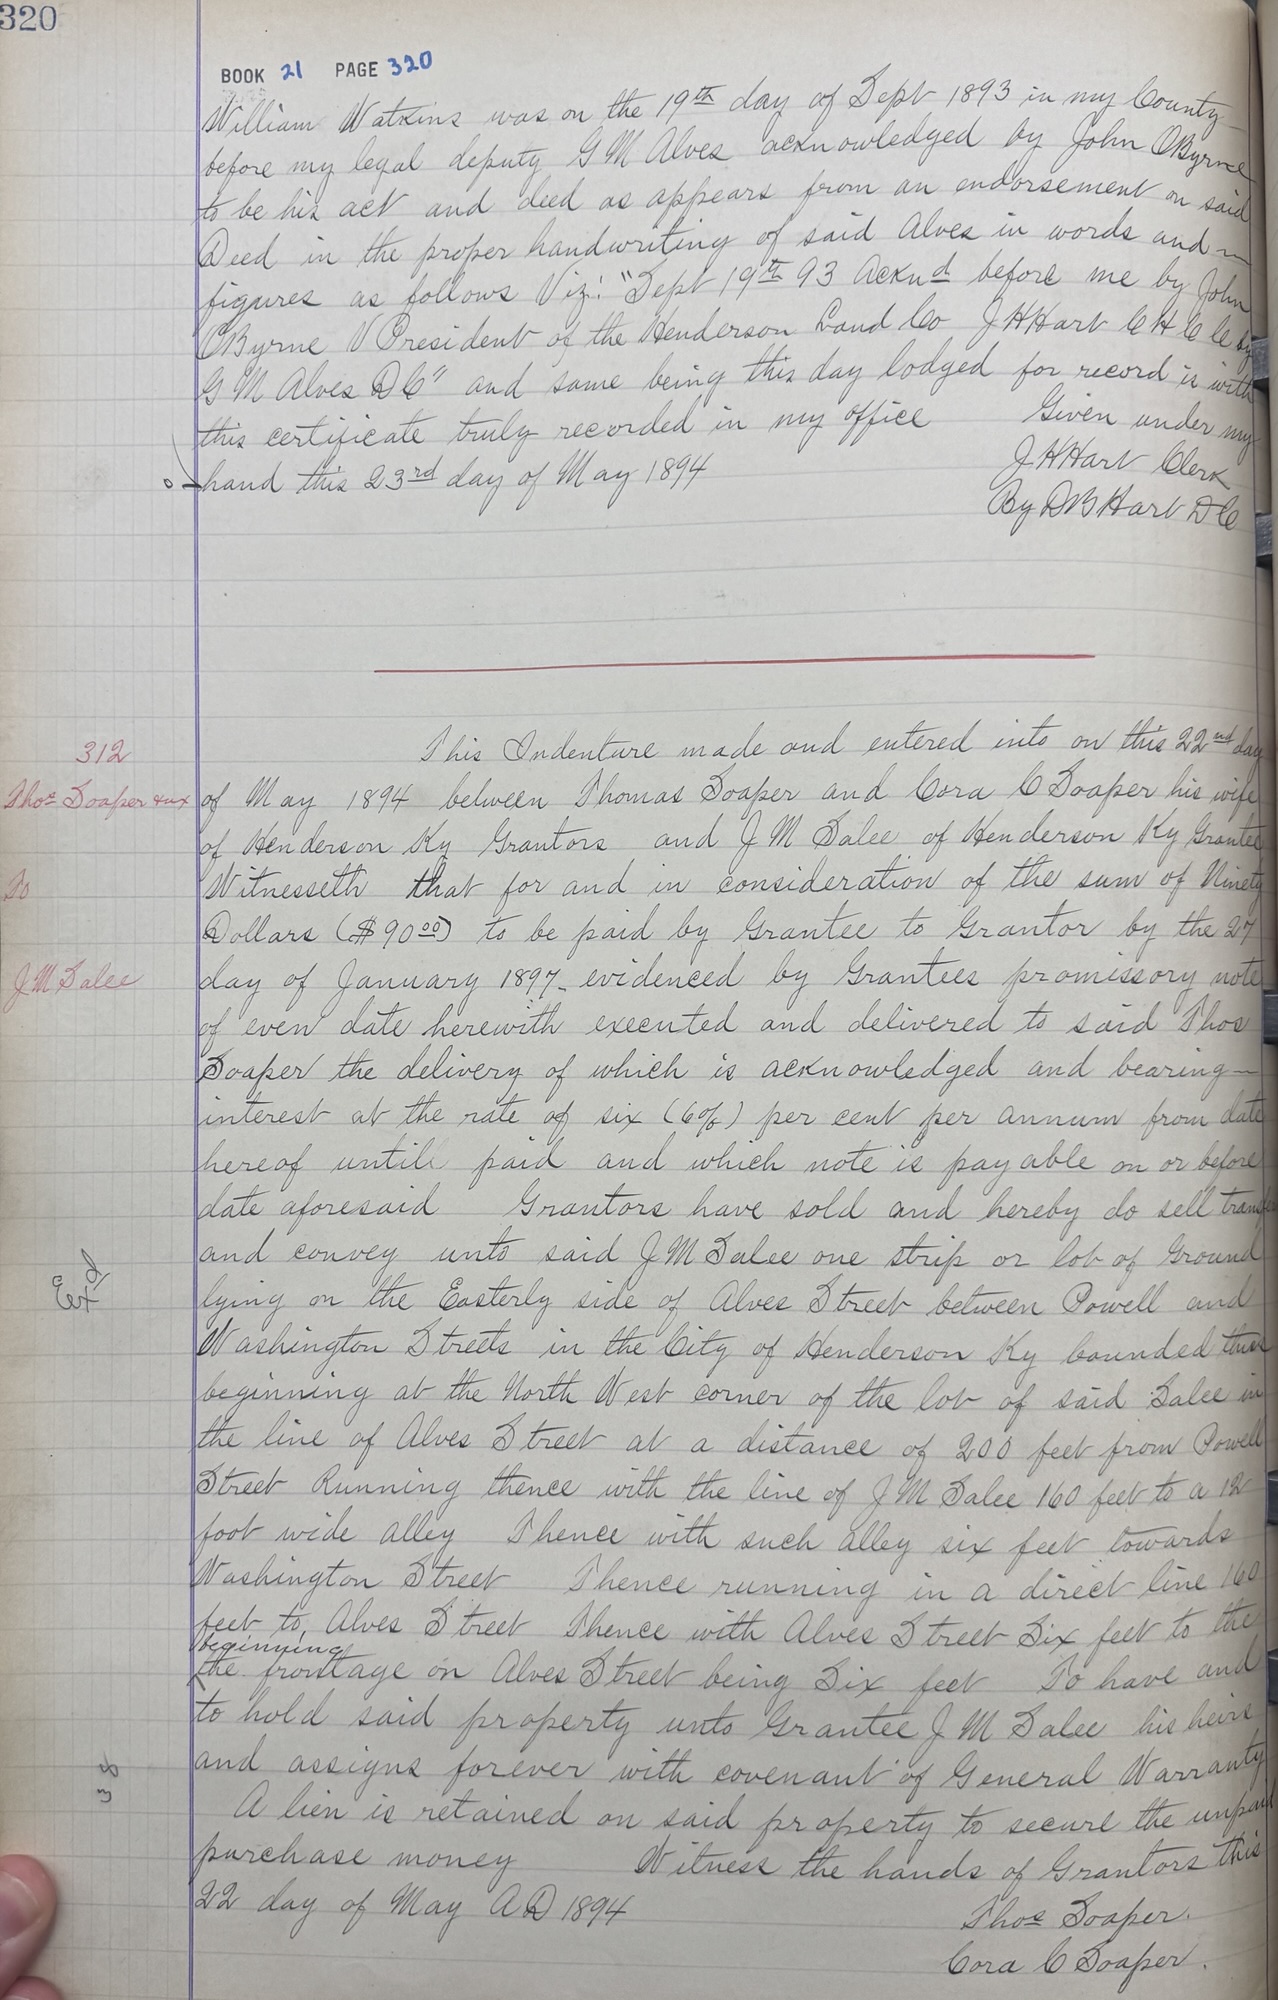 320
BOOK 21 PAGE 320
William Watkins was on the 19th day of Sept 1893 in my County
before my legal deputy G M Alves acknowledged by John OByrne
to be his act and deed as appears from an endorsement on said
Deed in the proper handwriting of said Alves in words and
figures as follows Viz: "Sept 19th 93 Acknd before me by John
OByrne V President of the Henderson Land Co J H Hart C H C C by
G M Alves D C" and same being this day lodged for record is with
this certificate truly recorded in my office Given under my
hand this 23rd day of May 1894 J H Hart Clerk
By D B Hart D C
312
This Indenture made and entered into on this 22nd day
Thos Soaper & ux
of May 1894 between Thomas Soaper and Cora C Soaper his wife
of Henderson Ky Grantors and J M Salee of Henderson Ky Grantee
To
Witnesseth that for and in consideration of the sum of Ninety
Dollars ($90.00) to be paid by Grantee to Grantor by the 27
J M Salee
day of January 1897 evidenced by Grantees promissory note
of even date herewith executed and delivered to said Thos
Soaper the delivery of which is acknowledged and bearing
interest at the rate of six (6%) per cent per annum from date
hereof untill paid and which note is payable on or before
date aforesaid Grantors have sold and hereby do sell transfer
and convey unto said J M Salee one strip or lot of Ground
Exd
lying on the Easterly side of Alves Street between Powell and
Washington Streets in the City of Henderson Ky bounded thus
beginning at the North West corner of the lot of said Salee in
the line of Alves Street at a distance of 200 feet from Powell
Street Running thence with the line of J M Salee 160 feet to a 12
foot wide alley Thence with such alley six feet towards
Washington Street Thence running in a direct line 160
feet to Alves Street Thence with Alves Street Six feet to the
beginning
the frontage on Alves Street being Six feet To have and
to hold said property unto Grantee J M Salee his heirs
and assigns forever with covenant of General Warranty
38
A lien is retained on said property to secure the unpaid
purchase money Witness the hands of Grantors this
22 day of May A D 1894
Thos Soaper.
Cora C Soaper.